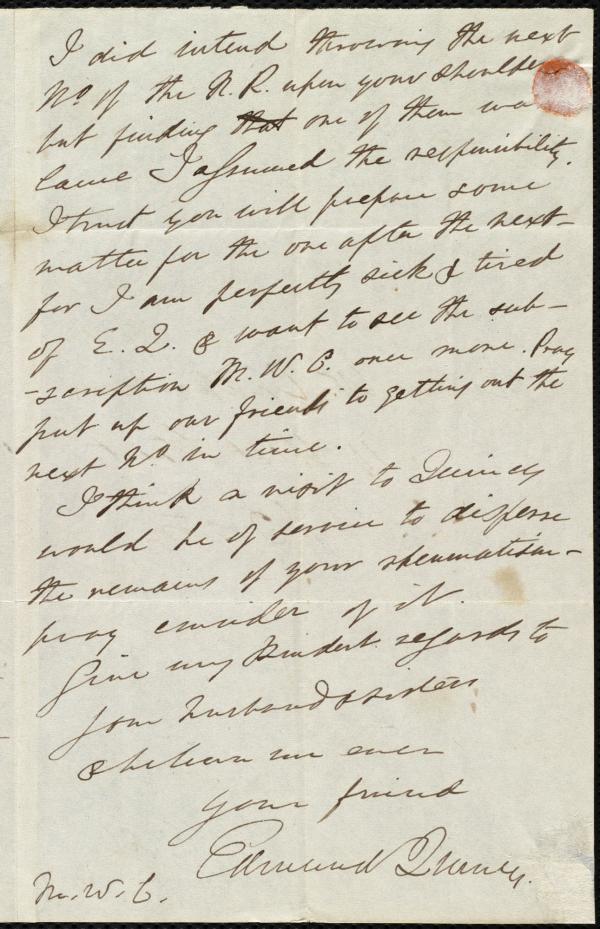 I did intend throwing the next
No. of the N. R. upon your shoulde
but finding that one of them was
lame I assumed the responsibility.
I trust you will prepare some
matter for the one after the next -
for I am perfectly sick & tired
of E. Q. & want to see the sub-
-scription M. W. C. once more. Pray
put up our friends to getting out the
next No. in time.
I think a visit to Quincy
would be of service to disperse
the remains of your rheumatism -
pray consider of it.
Give my kindest regards to
your husband & sisters
& believe me ever
your friend
Edmund Quincy.
M. W. C.